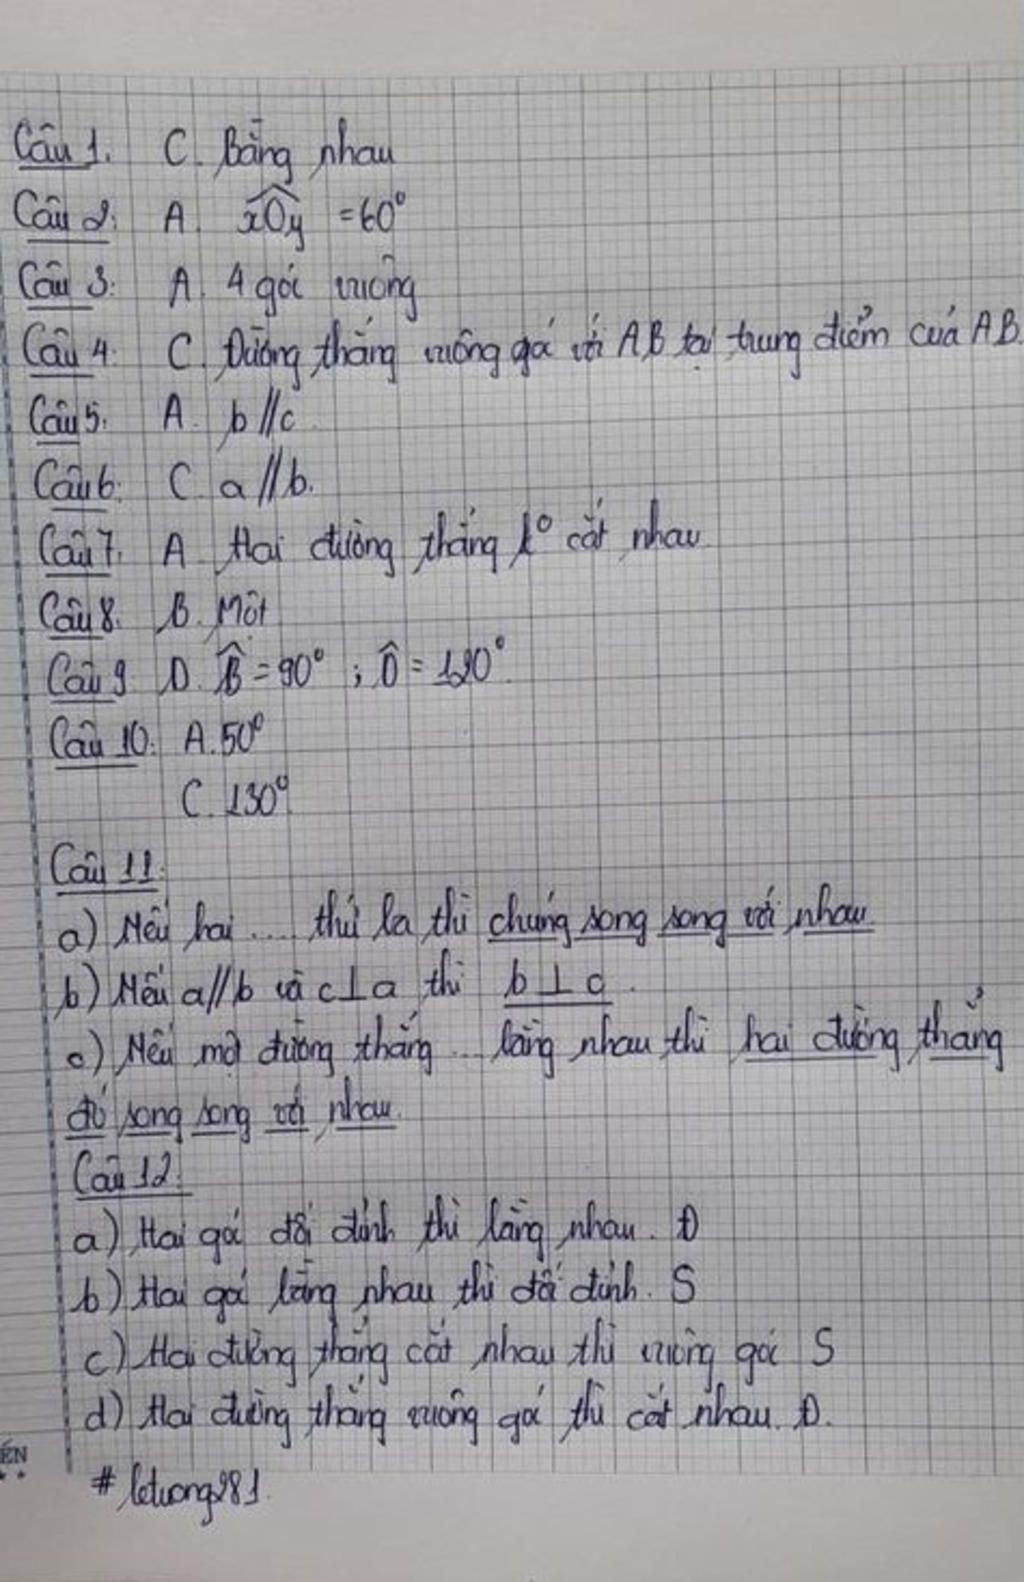 Câu 1. C. Bằng nhau
Câu 2: A. xOy = 60°
Câu 3: A. 4 góc vuông
Câu 4: C. Đường thẳng vuông góc với AB tại trung điểm của AB.
Câu 5: A. b//c
Câu 6: C. a//b.
Câu 7. A. Hai đường thẳng k° cắt nhau
Câu 8. B. Một
Câu 9 D. B̂ = 90° ; D̂ = 120°.
Câu 10: A. 50°
C. 130°
Câu 11:
a) Nếu hai .... thứ ba thì chúng song song với nhau
b) Nếu a//b và c⊥a thì b⊥c.
c) Nếu một đường thẳng ... bằng nhau thì hai đường thẳng
đó song song với nhau.
Câu 12:
a) Hai góc đối đỉnh thì bằng nhau. Đ
b) Hai góc bằng nhau thì đối đỉnh. S
c) Hai đường thẳng cắt nhau thì vuông góc S
d) Hai đường thẳng vuông góc thì cắt nhau. Đ.
ẾN
# letuong281.